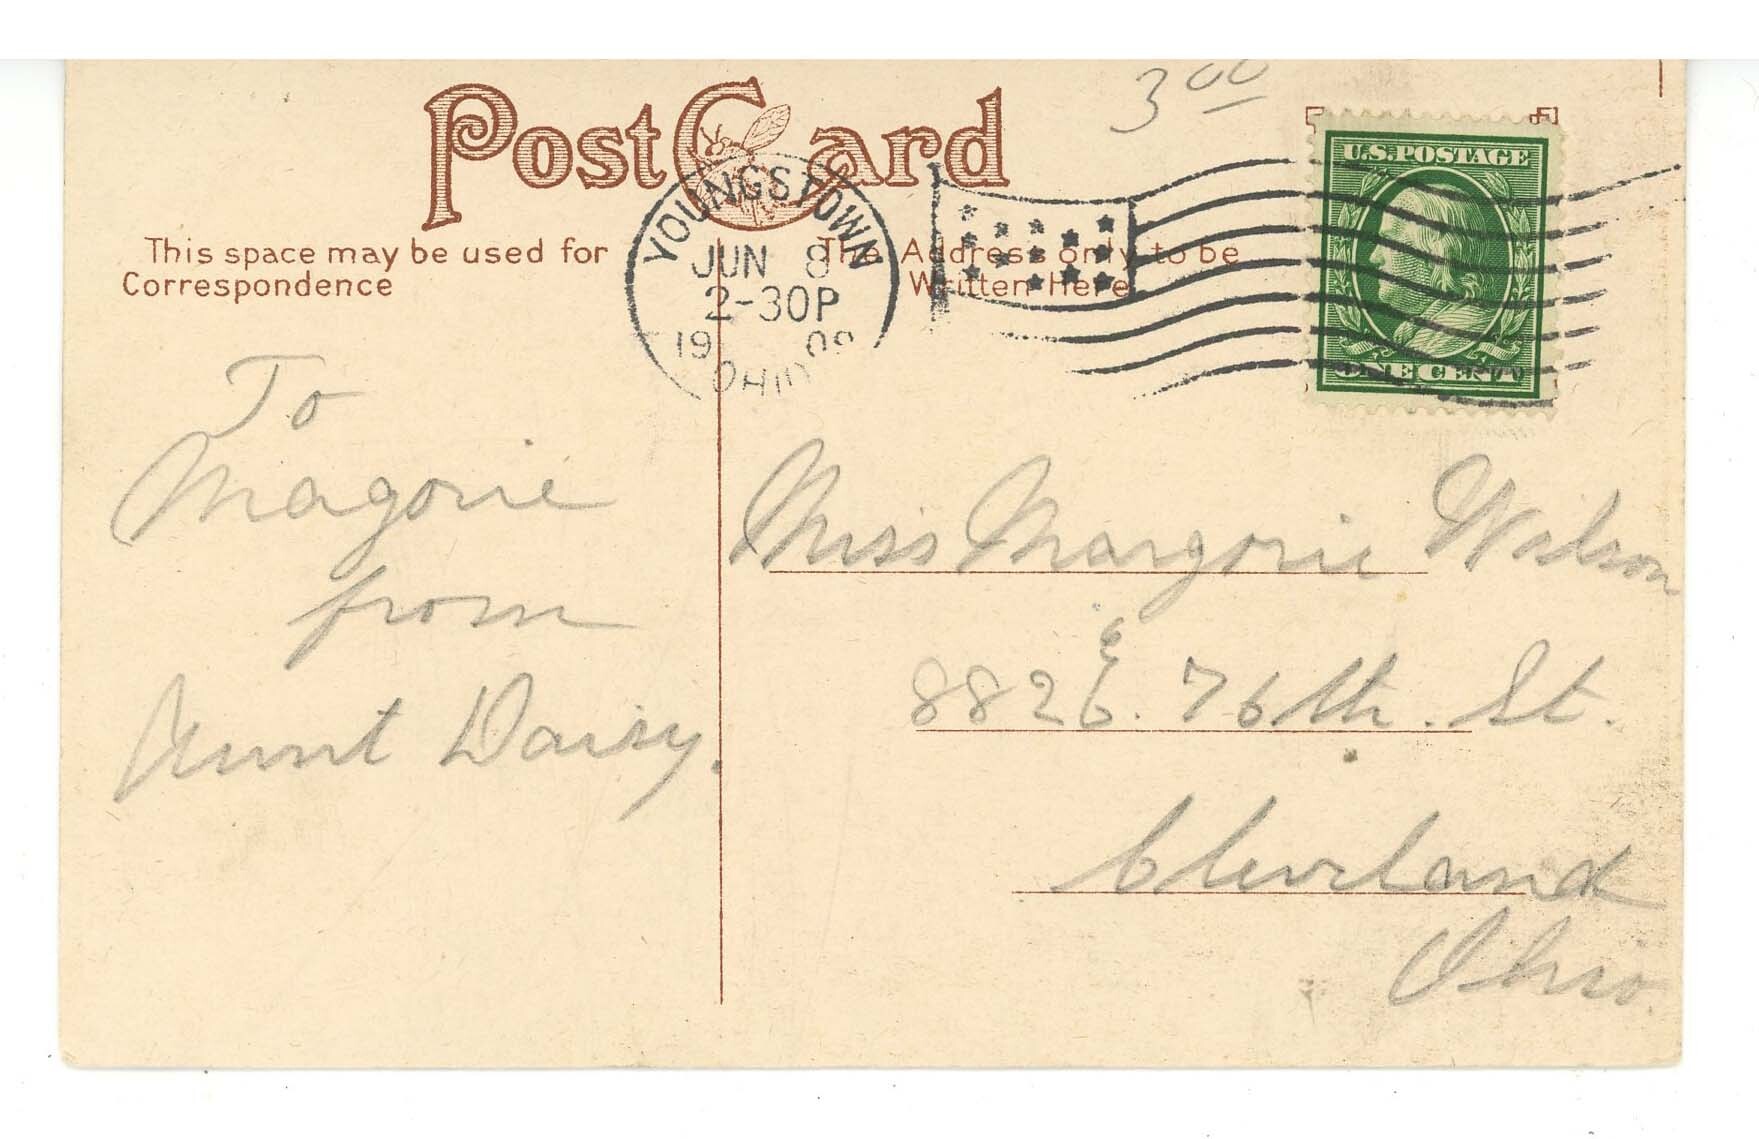 Post Card
3 00
U.S. POSTAGE
ONE CENT
YOUNGSTOWN
JUN 8
2-30P
1909
OHIO
This space may be used for
Correspondence
The Address only to be
Written Here
To
Magorie
from
Aunt Daisy.
Miss Margorie Wilson
8826 E. 76th. St.
Cleveland
Ohio